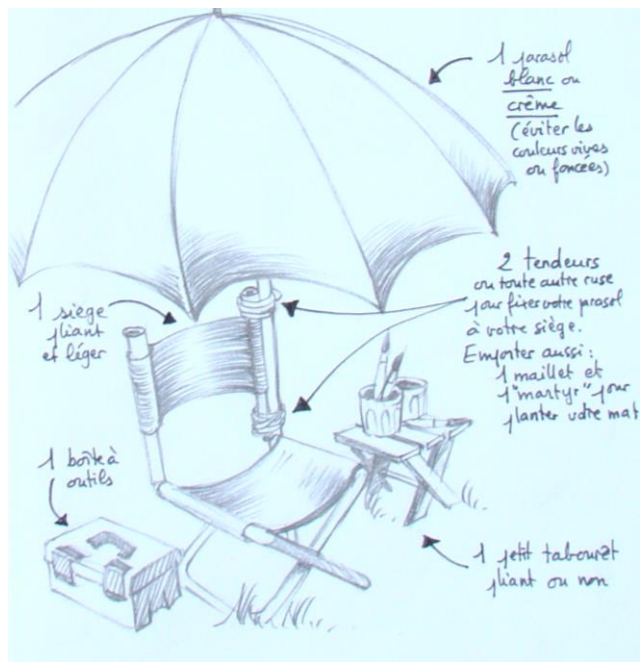 1 parasol
blanc ou
crème
(éviter les
couleurs vives
ou foncées)
2 tendeurs
ou toute autre ruse
pour fixer votre prasol
à votre siège.
Emporter aussi :
1 maillet et
1 "martyr" pour
planter votre mat
1 siège
pliant
et léger
1 boîte à
outils
1 petit tabouret
pliant ou non